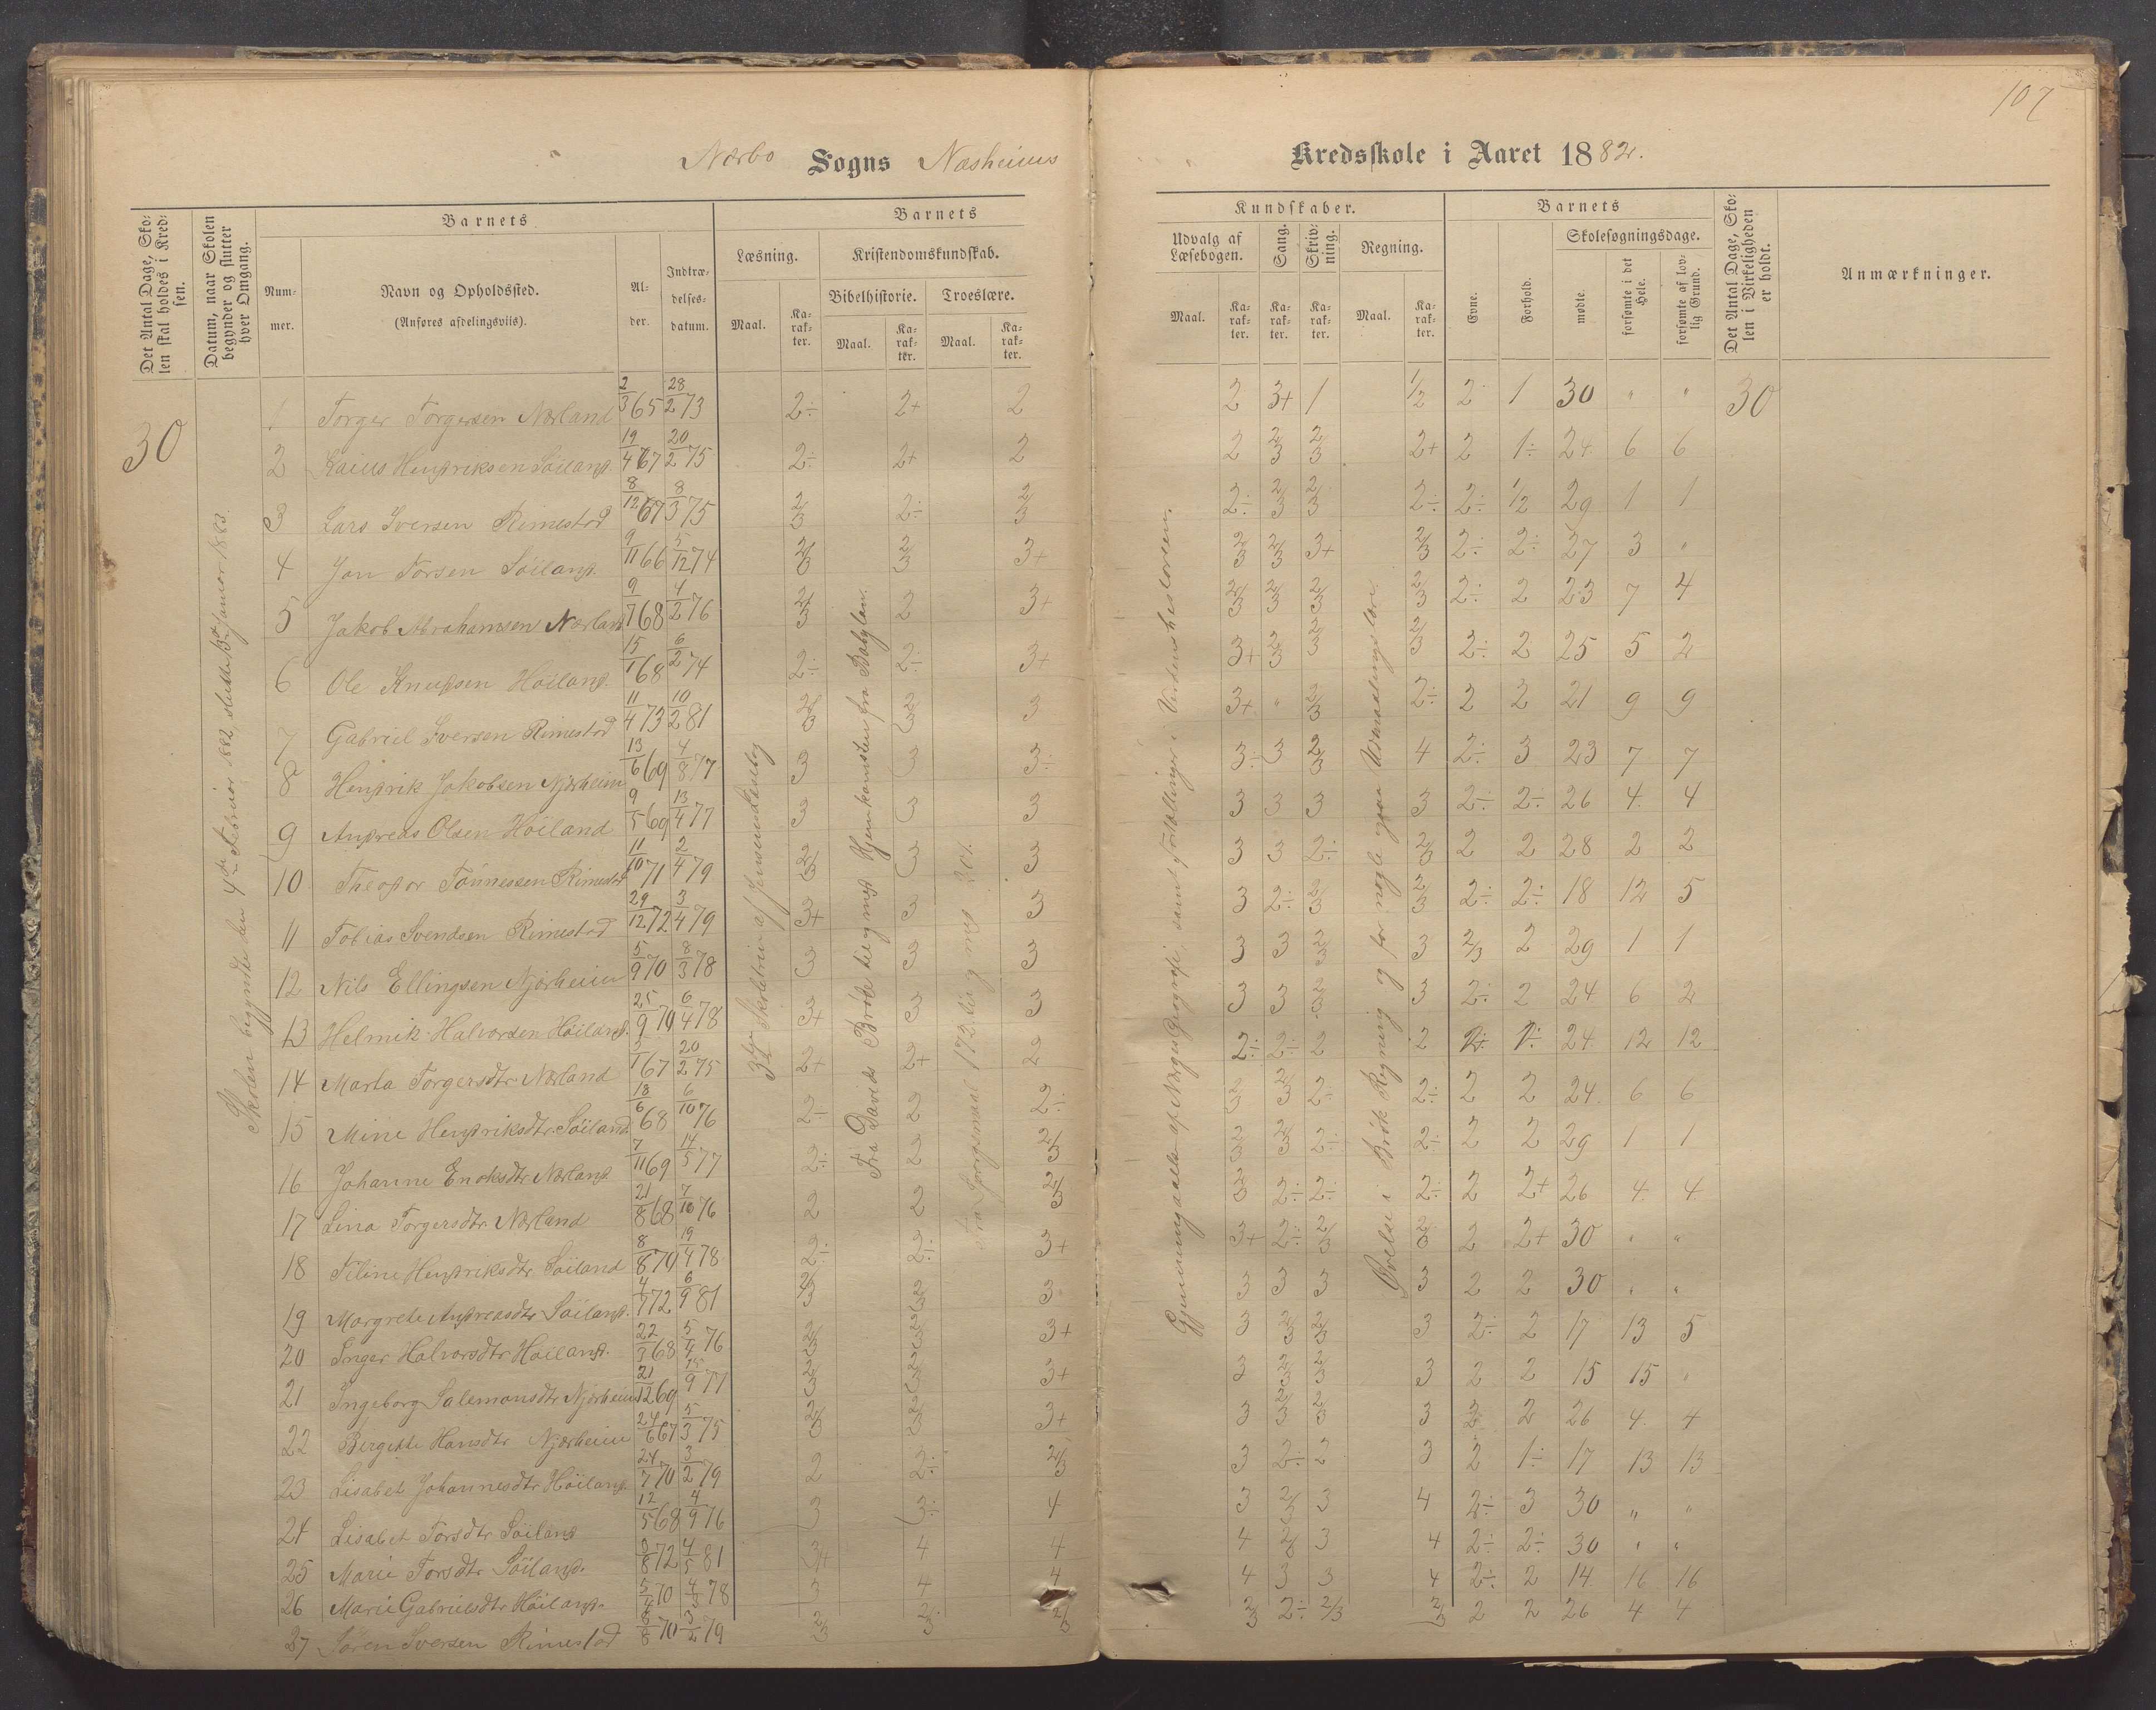 107
Nærbo Sogns Næsheims Kredsskole i Aaret 1882.
Det Antal Dage, Skolen skal holdes i Kredsen.
Datum, naar Skolen begynder og slutter hver Omgang.
Barnets
Nummer.
Navn og Opholdssted.
(Anføres afdelingsviis).
Alder.
Indtrædelsesdatum.
Barnets Kundskaber.
Læsning.
Maal.
Karakter.
Kristendomskundskab.
Bibelhistorie.
Maal.
Karakter.
Troeslære.
Maal.
Karakter.
Udvalg af Læsebogen.
Maal.
Karakter.
Sang.
Karakter.
Skrivning.
Karakter.
Regning.
Maal.
Karakter.
Barnets
Evne.
Forhold.
Skolesøgningsdage.
mødte.
forsømte i det Hele.
forsømte af lovlig Grund.
Det Antal Dage, Skolen i Virkeligheden er holdt.
Anmærkninger.
30
Skolen begyndte den 4de Februar 1882, sluttede Januar 1883.
3die Skoletrin af Jensens Læsebog
Fra Davids Brøde til og med Hjemkomsten fra Babylon.
Fra Spørgsmaal 172 til og med 201.
Gjennemgaaelse af Norges Geografi, samt Fortællinger i Verdenshistorien.
Øvelse i Brøk Regning og for nogle ogsaa Udmaalingslære
1 Torger Torgersen Nærland 2/3 65 28/2 73 2÷ 2+ 2 2 3+ 1 1/2 2 1 30 " " 30
2 Kaius Hendriksen Söiland 19/4 67 20/2 75 2÷ 2+ 2 2 2/3 2/3 2+ 2 1÷ 24 6 6
3 Lars Iversen Rimestad 8/12 67 8/3 75 2/3 2÷ 2/3 2÷ 2/3 2/3 2÷ 2÷ 1/2 29 1 1
4 Jon Torsen Söiland 9/11 66 5/12 74 2/3 2/3 3+ 2/3 2/3 3+ 2/3 2÷ 2÷ 27 3 "
5 Jakob Abrahamsen Nærland 9/7 68 4/2 76 2/3 2 3+ 2/3 2/3 2/3 2/3 2÷ 2 23 7 4
6 Ole Knudsen Höiland 15/1 68 6/2 74 2÷ 2÷ 3+ 3+ 2/3 2/3 2/3 2÷ 2 25 5 2
7 Gabriel Iversen Rimestad 11/4 73 10/2 81 2/3 2/3 3 3+ " 2/3 2÷ 2 2 21 9 9
8 Hendrik Jakobsen Njærheim 13/6 69 4/8 77 3 3 3÷ 3÷ 3 2/3 4 2÷ 3 23 7 7
9 Andreas Olsen Höiland 9/5 69 13/4 77 3 3 3 3 3 3 3 2÷ 2÷ 26 4 4
10 Theodor Tönnessen Rimestad 11/10 71 2/4 79 2/3 3 3 3 3 2÷ 2/3 2 2 28 2 2
11 Tobias Svendsen Rimestad 29/12 72 3/4 79 3+ 3 3 3 2÷ 2/3 2/3 2÷ 2÷ 18 12 5
12 Nils Ellingsen Njærheim 5/9 70 8/3 78 3 3 3 3 3 2/3 3 2/3 2 29 1 1
13 Helmik Halvorsen Höiland 25/9 70 6/4 78 3+ 3 3 3 3 2/3 3 2÷ 2 24 6 2
14 Marta Torgersdtr Nærland 3/1 67 20/2 75 2+ 2+ 2 2÷ 2÷ 2 2 2÷ 1÷ 24 12 12
15 Mine Hendriksdtr Söiland 18/6 68 6/10 76 2÷ 2 2÷ 2/3 2/3 2÷ 2÷ 2 2 24 6 6
16 Johanne Enoksdtr Nærland 7/11 69 14/5 77 2÷ 2 2/3 2/3 2/3 2÷ 2÷ 2 2 29 1 1
17 Lina Torgersdtr Nærland 21/8 68 7/10 76 2 2 2/3 2/3 2÷ 2÷ 2÷ 2 2+ 26 4 4
18 Tiline Hendriksdtr Söiland 8/8 70 19/4 78 2÷ 2÷ 3+ 3+ 2÷ 2/3 2/3 2 2+ 30 " "
19 Margrete Andreasdtr Söiland 4/1 72 6/9 81 2/3 2/3 3 3 3 3 3 2 2 30 " "
20 Inger Halvorsdtr Höiland 22/3 68 5/4 76 2/3 2/3 3+ 3 2/3 2/3 3 2÷ 2 17 13 5
21 Ingeborg Salemonsdtr Njærheim 21/12 69 15/9 77 2/3 2/3 3+ 3 2/3 2/3 3 2 2 15 15 "
22 Bergitte Hansdtr Njærheim 24/6 67 5/3 75 2/3 2/3 3+ 3 2/3 2/3 3 2 2 26 4 4
23 Lisabet Johannesdtr Höiland 24/7 70 3/2 79 2 2÷ 2/3 3 2÷ 2 3 2 1÷ 17 13 13
24 Lisabet Torsdtr Söiland 12/5 68 4/9 76 3 3÷ 4 3 2/3 3 4 2÷ 3 30 " "
25 Marie Torsdtr Söiland 3/8 72 4/5 81 3+ 4 4 4 2/3 3 4 2÷ 2÷ 30 " "
26 Marie Gabrielsdtr Höiland 5/4 70 4/5 78 3 4 4 4 3 3 4 2÷ 2 14 16 16
27 Sören Iversen Rimestad 6/8 70 3/2 79 2/3 2/3 2/3 2/3 2÷ 2/3 2/3 2 2 26 4 4